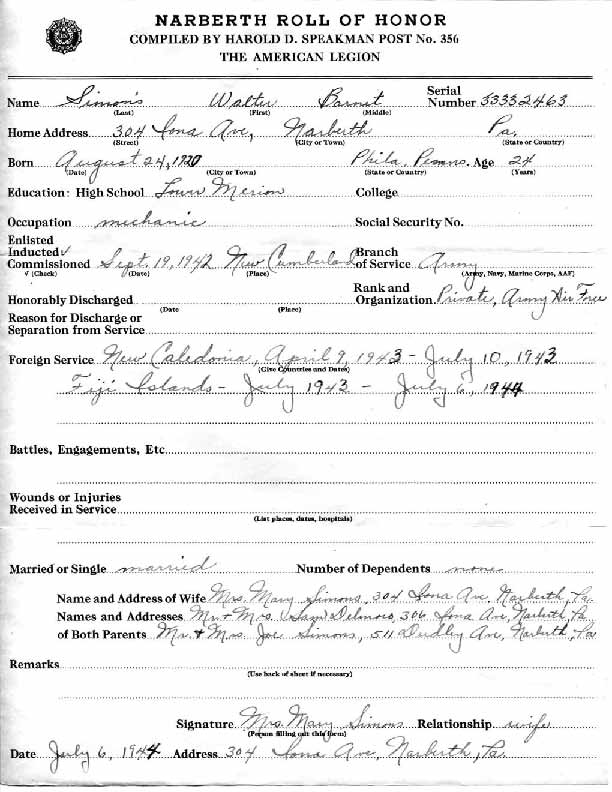 NARBERTH ROLL OF HONOR
COMPILED BY HAROLD D. SPEAKMAN POST No. 356
THE AMERICAN LEGION
Name Simons Walter Barnet Serial Number 33332463
(Last) (First) (Middle)
Home Address 304 Iona Ave, Narberth Pa.
(Street) (City or Town) (State or Country)
Born August 24, 1920 Phila. Penna. Age 24
(Date) (City or Town) (State or Country) (Years)
Education: High School Lower Merion College
Occupation mechanic Social Security No.
Enlisted
Inducted √ Branch
Commissioned Sept. 19, 1942 New Cumberland of Service Army
√ (Check) (Date) (Place) (Army, Navy, Marine Corps, AAF)
Rank and
Honorably Discharged Organization Private, Army Air Force
(Date (Place)
Reason for Discharge or
Separation from Service
Foreign Service New Caledonia, April 9, 1943 - July 10, 1943
(Give Countries and Dates)
Fiji Islands - July 1943 - July 6, 1944
Battles, Engagements, Etc
Wounds or Injuries
Received in Service
(List places, dates, hospitals)
Married or Single married Number of Dependents none
Name and Address of Wife Mrs. Mary Simons, 304 Iona Ave. Narberth, Pa.
Names and Addresses Mr. + Mrs. Sam 306 Iona Ave, Narberth, Pa.
of Both Parents Mr. + Mrs. Joe Simons, 511 Dudley Ave, Narberth, Pa
Remarks
(Use back of sheet if necessary)
Signature Mrs. Mary Simons Relationship wife
(Person filling out this form)
Date July 6, 1944 Address 304 Iona Ave, Narberth, Pa.